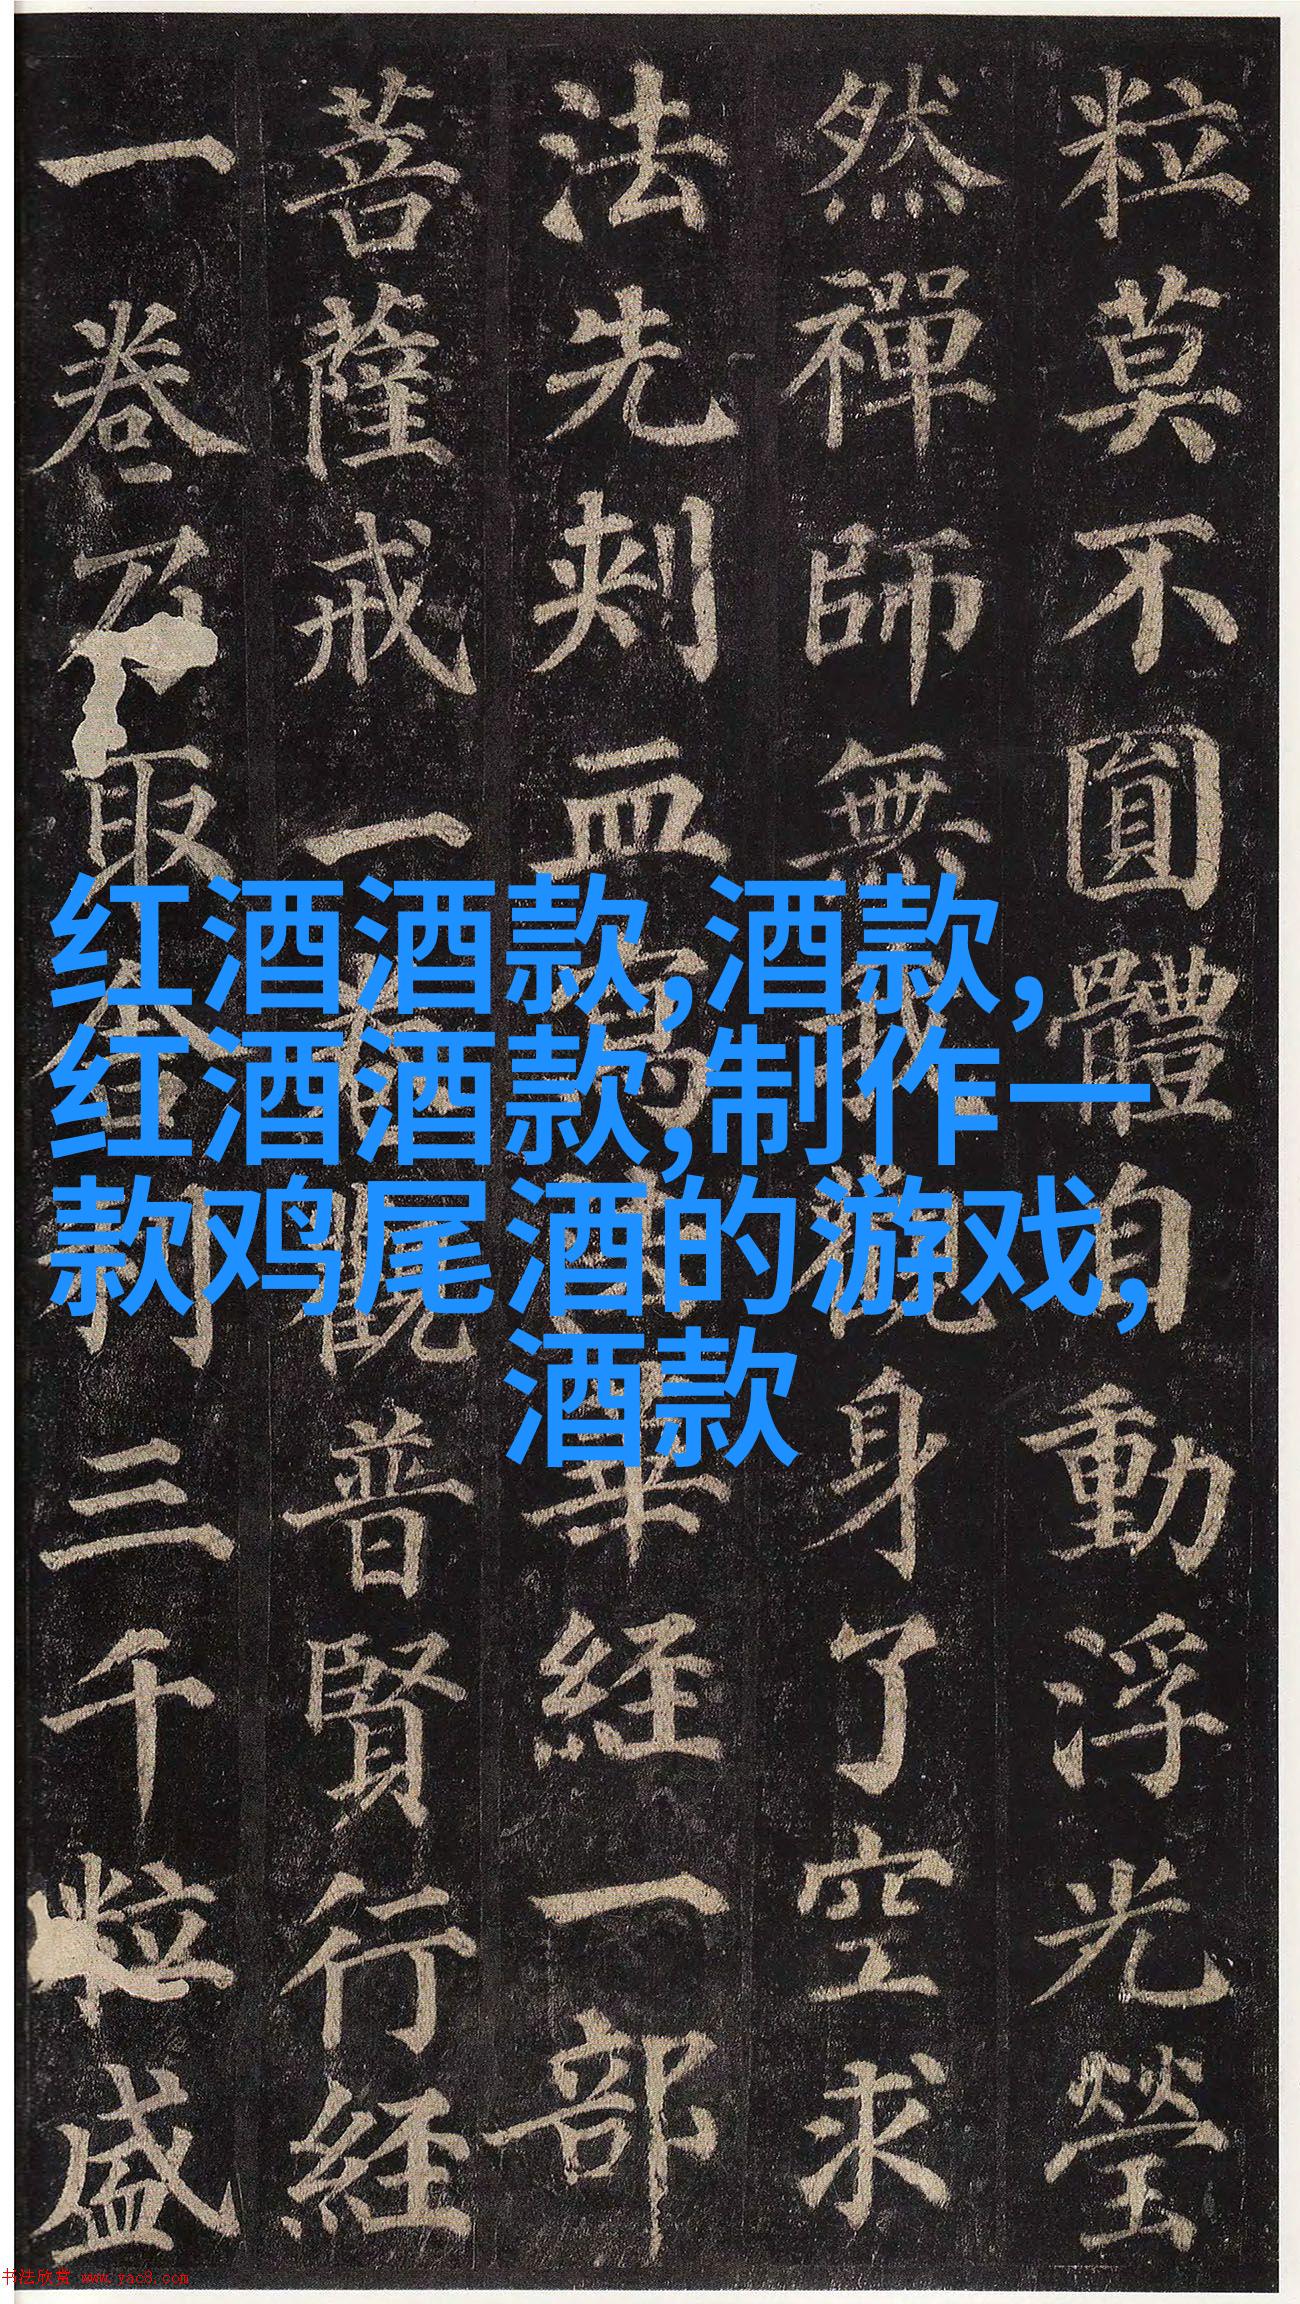 粒莫不圓體自動浮光瑩
然禪師無我觀身了空求
法先刺血寫法華経一部
菩薩戒一卷觀普賢行経
一卷乃取舍利三千粒盛
红酒酒款,酒款,
红酒酒款,制作一
款鸡尾酒的游戏,
酒款
书法欣赏 www.yac8.com